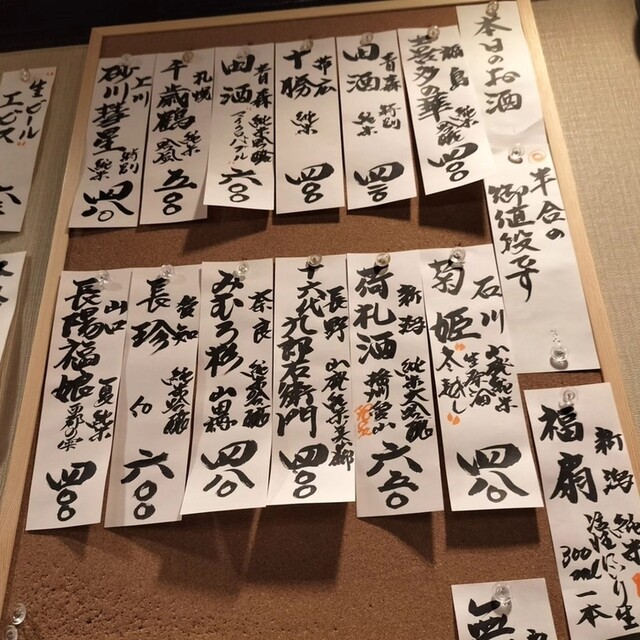 本日のお酒
半合の
御値段です
福島
喜多の華
純米吟醸
四〇〇
青森
田酒
特別
純米
四五〇
帯広
十勝
純米
四〇〇
青森
田酒
純米吟醸
六〇〇
札幌
千歳鶴
純米
吟風
五〇〇
上川
砂川彗星
特別
純米
四八〇
石川
菊姫
山廃純米
生原酒
冬越し
四八〇
新潟
荷札酒
純米大吟醸
六五〇
長野
十六代九郎右衛門
山廃純米美山錦
四〇〇
奈良
みむろ杉
純米吟醸
四八〇
愛知
長珍
純米吟醸
六〇〇
山口
長陽福娘
純米
四〇〇
新潟
福扇
純米
にごり生
300ml一本
生ビール
エビス
無